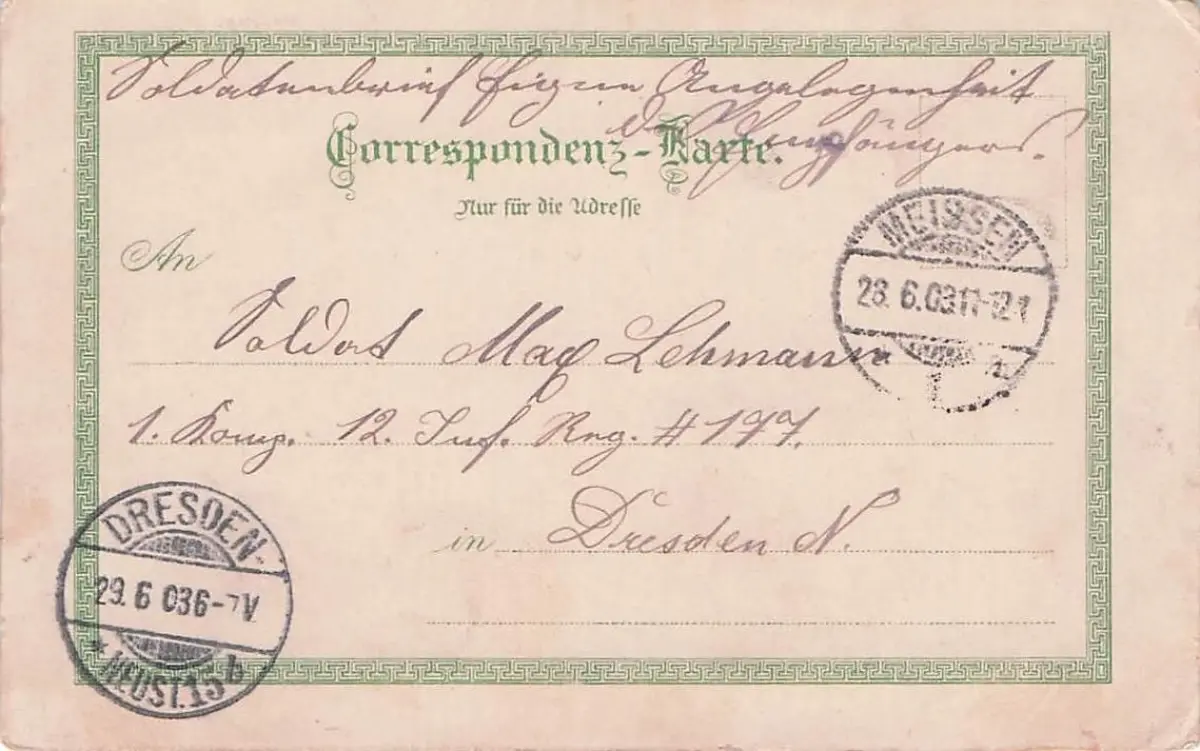 Soldatenbrief Eigne Angelegenheit
d. Empfängers.
Correspondenz-Karte.
Nur für die Adresse
An
MEISSEN
28.6.03 11-12
1
Soldat Max Lehmann
1. Komp. 12. Inf. Reg. # 177.
in Dresden N.
DRESDEN-
29.6 03 6-7V
* NEUST. 15 b